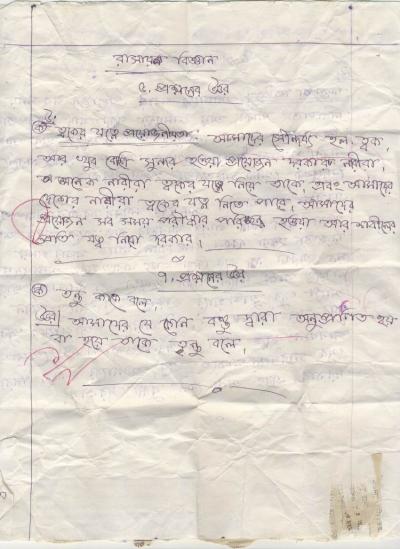 রাসায়ন বিজ্ঞান
৫. প্রশ্নের উঃ
ত্বকের যত্নে প্রয়োজনীয়তা: আমাদের সৌন্দর্য হল ত্বক,
আর খুব বেশি সুন্দর হওয়া প্রয়োজন দরকার নারীরা,
অনেক নারীরা ত্বকের যত্ন নিয়ে তাকে, এবং আমাদের
দেশের নারীরা ত্বকের যত্ন নিতে পারে, আমাদের
প্রয়োজন সব সময় পরিষ্কার পরিচ্ছন্ন হওয়া আর শরীলের
প্রতি যত্ন নিয়ে দরকার।
৭. প্রশ্নের উঃ
তন্তু কাকে বলে,
উঃ আমাদের যে কোন বস্তু দ্বারা হয়
বা হয়ে তাকে তন্তু বলে,